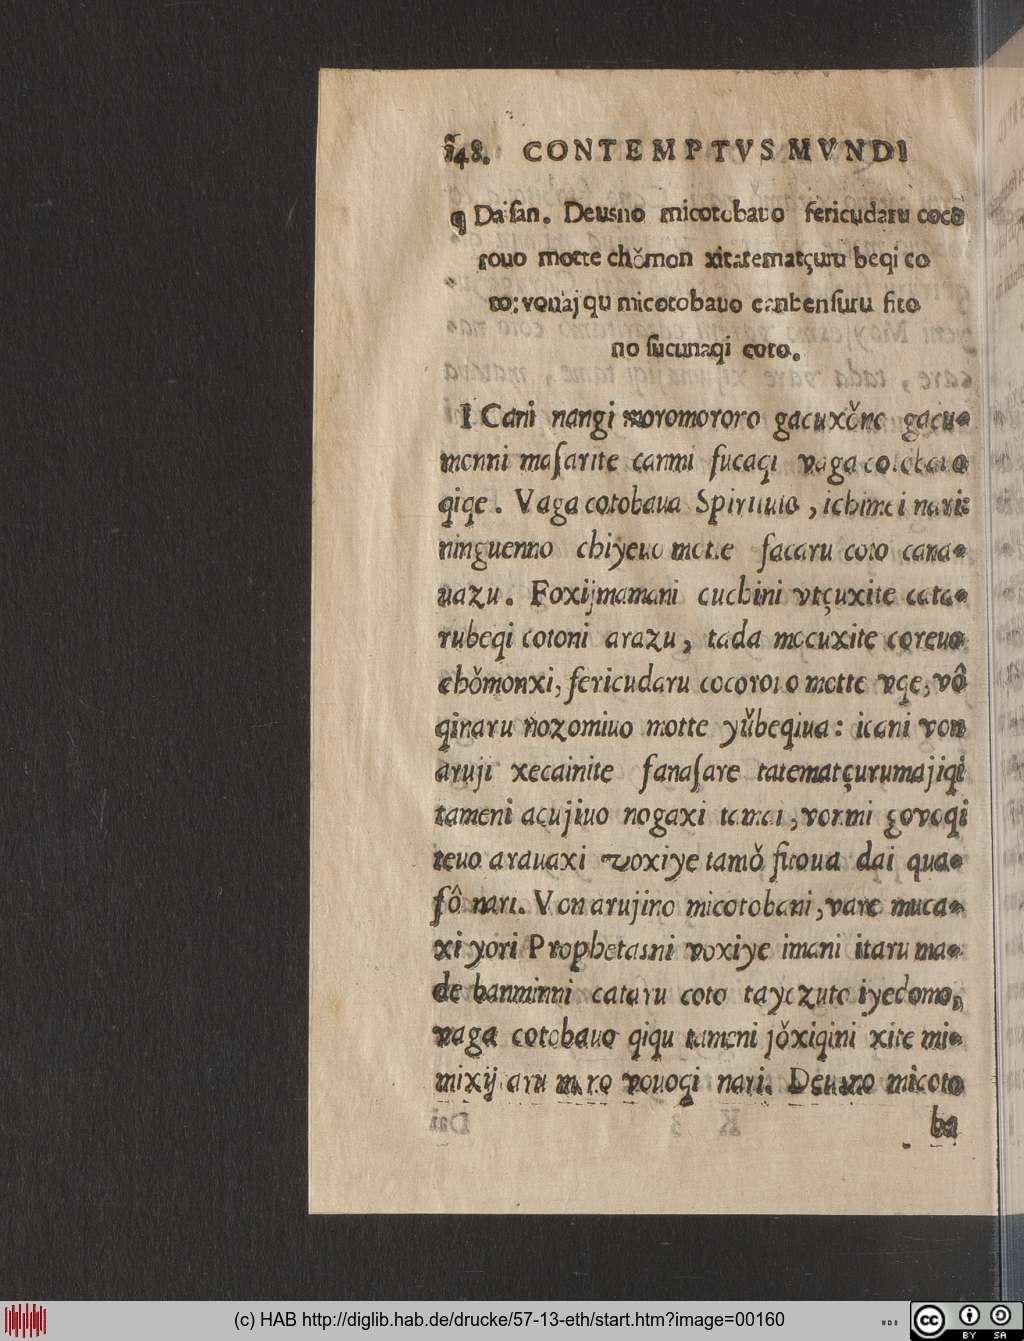 148. CONTEMPTVS MVNDI
¶ Dai ſan. Deusno micotobauo fericudaru coco
rouo motte chǒmon xitatematçuru beqi co
to: vouaj qu micotobauo canbenſuru fito
no ſucunaqi coto.
I Cani nangi moromororo gacuxǒno gacu-
monni maſarite canmi fucaqi vaga cotobauo
qiqe. Vaga cotobaua Spirituio, ichimei naris
ninguenno chiyeuo motte facaru coto cana-
uazu. Foxijmamani cuchini vtçuxite cata-
rubeqi cotoni arazu, tada mocuxite coreuo
chǒmonxi, fericudaru cocororo motte vqe, vô
qinaru nozomiuo motte yǔbeqiua: icani von
aruji xecainite fanaſare tatematçurumajiqi
tameni acujiuo nogaxi tamai, vonmi goyoqi
teuo arauaxi voxiye tamǒ fitoua dai qua-
fô nari. Von arujino micotobani, vare muca-
xi yori Prophetasni voxiye imani itaru ma-
de banminni cataru coto tayezuto iyedomo,
vaga cotobauo qiqu tameni jǒxiqini xite mi-
mixij aru mono vouoqi nari. Deusno micoto
ba
(c) HAB http://diglib.hab.de/drucke/57-13-eth/start.htm?image=00160
cc BY SA